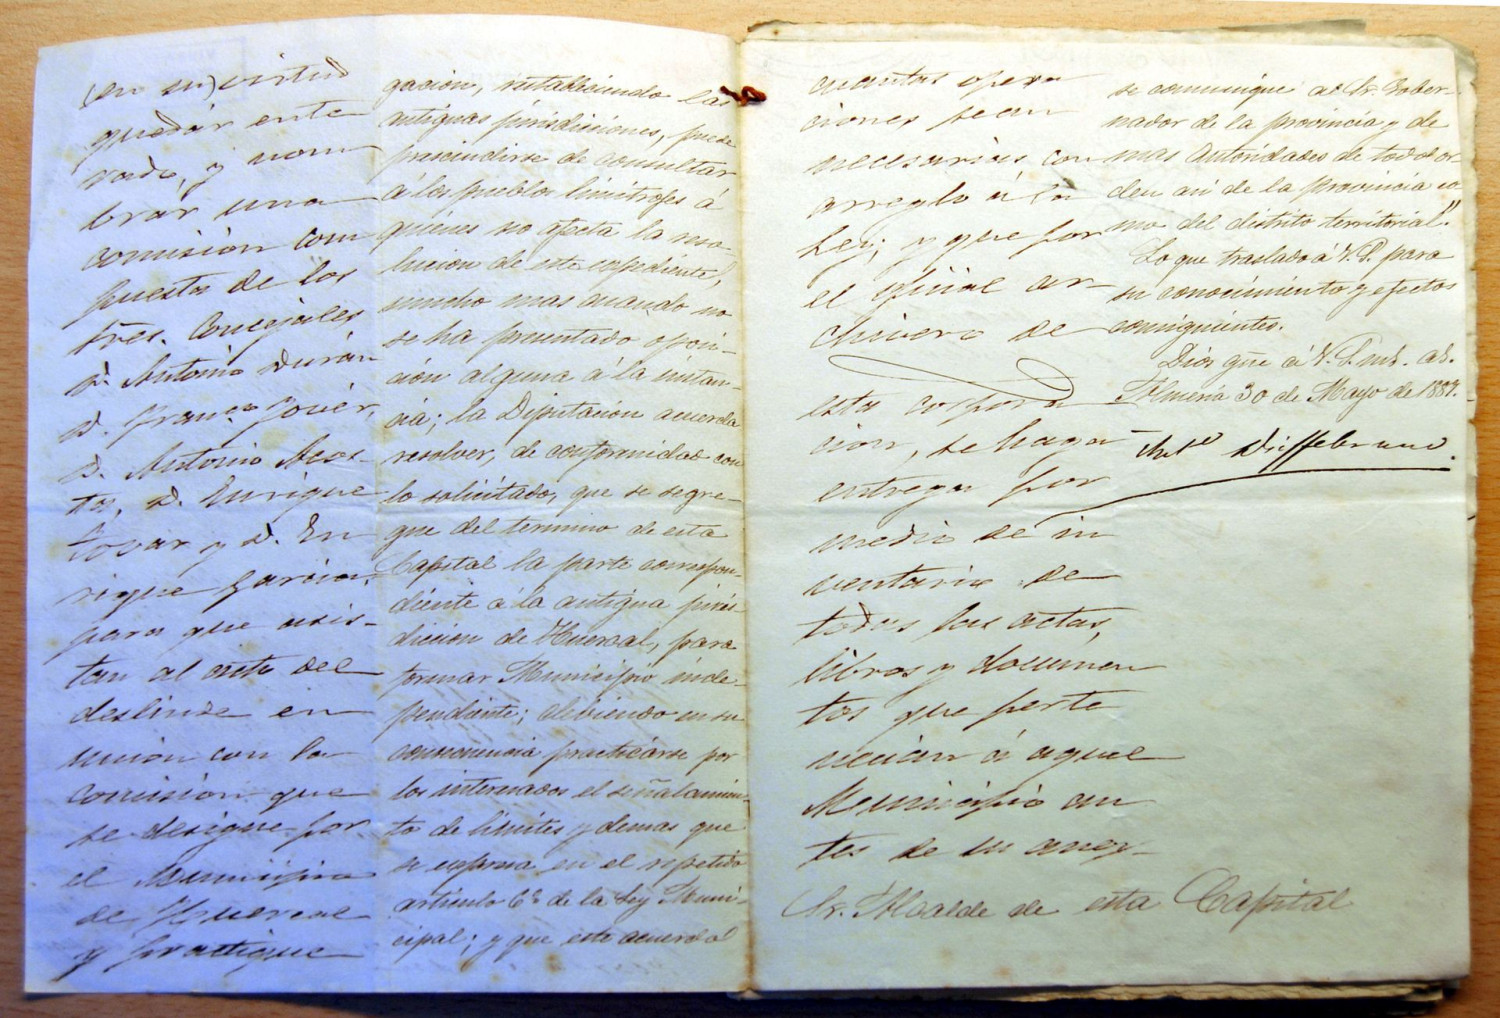 (en su) virtud
quedar ente
rado, y nom
brar una
comisión com
puesta de los
tres. Concejales
D. Antonio Durán
D. Fran.co Jover,
D. Antonio Acos-
ta, D. Enrique
Tovar y D. En
rique García,
para que asis-
tan al acto del
deslinde en
unión con la
comisión que
se designe por
el Municipio
de Huercal
y practique
gación, restableciendo las
antiguas jurisdicciones, puede
prescindirse de consultar
á los pueblos limítrofes á
quienes no afecta la reso-
lucion de este expediente,
mucho mas cuando no
se ha presentado oposi-
ción alguna á la instan-
cia; la Diputación acuerda
resolver, de conformidad con
lo solicitado, que se segre-
gue del termino de esta
Capital la parte correspon-
diente á la antigua juris
diccion de Huercal, para
formar Municipio inde-
pendiente; debiendo en su
consecuencia practicarse por
los interesados el señalamien-
to de límites y demas que
se expresa en el repetido
artículo 6º de la Ley Muni-
cipal; y que este acuerdo
cuantas opera
ciones sean
necesarias con
arreglo á la
Ley; y que por
el oficial ar-
chivero de
esta corpora
cion, se haga
entrega por
medio de in
ventario de
todas las actas,
libros y documen
tos que perte
necian á aquel
Municipio an
tes de su anex-
se comunique al Sr. Gober-
nador de la provincia y de
mas autoridades de todo or
den así de la provincia co
mo del distrito territorial."
Lo que traslado á V.S. para
su conocimiento y efectos
consiguientes.
Dios gue á V.S. ms. as.
Almería 30 de Mayo de 1887.
Ant.o
Sr. Alcalde de esta Capital